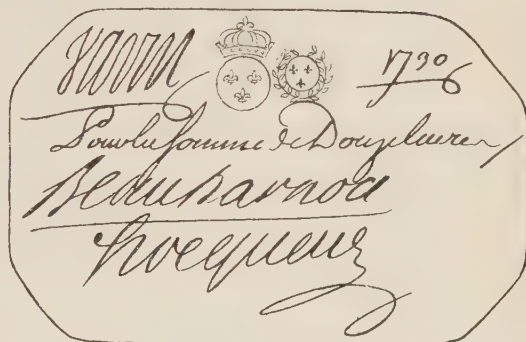 1730
Pour la Somme de Douze livres
Beauharnois
hocquart